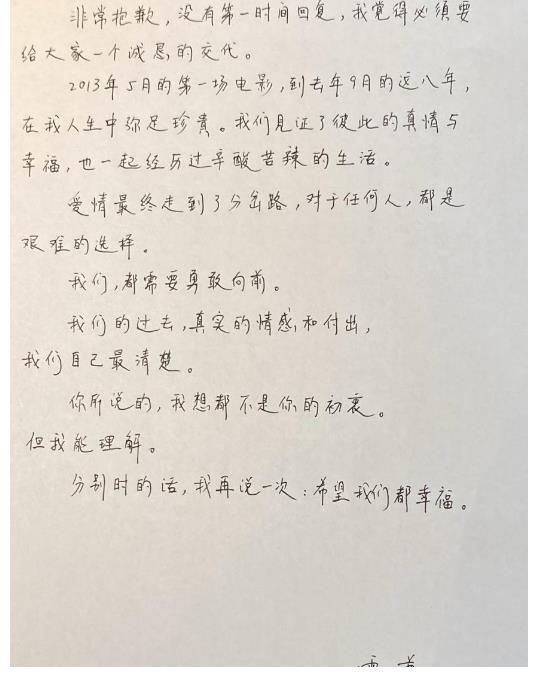 非常抱歉，没有第一时间回复，我觉得必须要
给大家一个诚恳的交代。
2013年5月的第一场电影，到去年9月的这八年，
在我人生中弥足珍贵。我们见证了彼此的真情与
幸福，也一起经历过辛酸苦辣的生活。
爱情最终走到了分岔路，对于任何人，都是
艰难的选择。
我们，都需要勇敢向前。
我们的过去，真实的情感和付出，
我们自己最清楚。
你所说的，我想都不是你的初衷。
但我能理解。
分别时的话，我再说一次：希望我们都幸福。